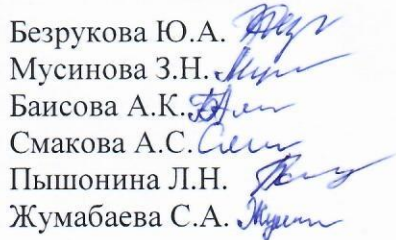 Безрукова Ю.А.
Мусинова З.Н.
Баисова А.К.
Смакова А.С.
Пышонина Л.Н.
Жумабаева С.А.